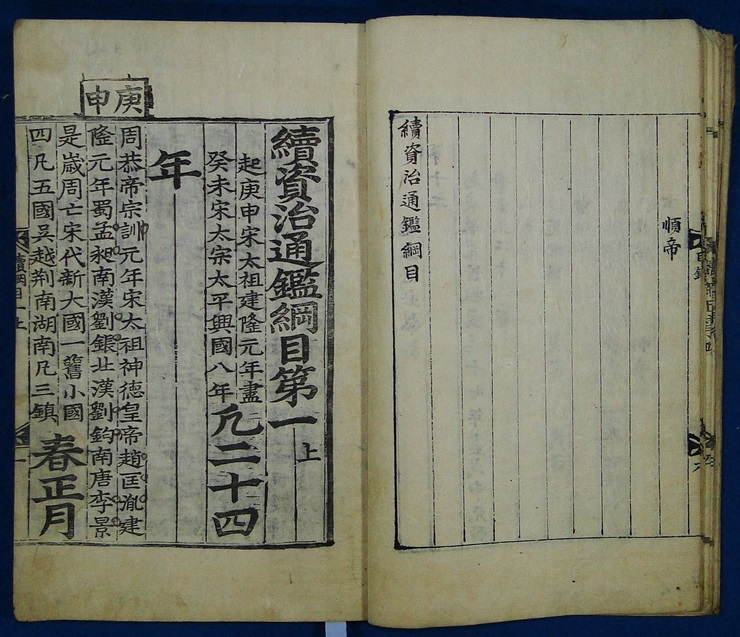 順帝
續資治通鑑綱目
續資治通鑑綱目第一上
起庚申宋太祖建隆元年盡
癸未宋太宗太平興國八年
凡二十四
年
庚申
周恭帝宗訓元年宋太祖神德皇帝趙匡胤建
隆元年蜀孟昶南漢劉鋹北漢劉鈞南唐李景
是歲周亡宋代新大國一舊小國
四凡五國吳越荊南湖南凡三鎮
春正月
續綱目一上
一